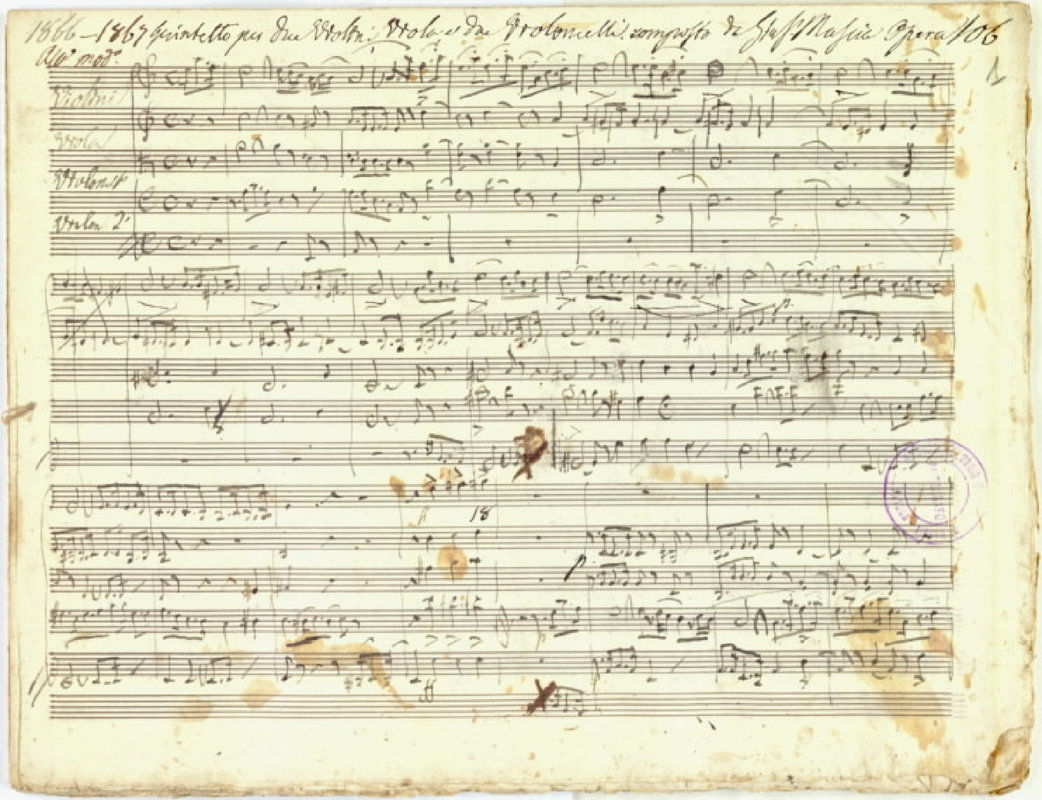 1866-1867 Quintetto per due Violini, Viola e due Violoncelli composto da Opera 106
All° mod°
1
Violini
Viola
Violon 2°
p
ff 18
p
ff